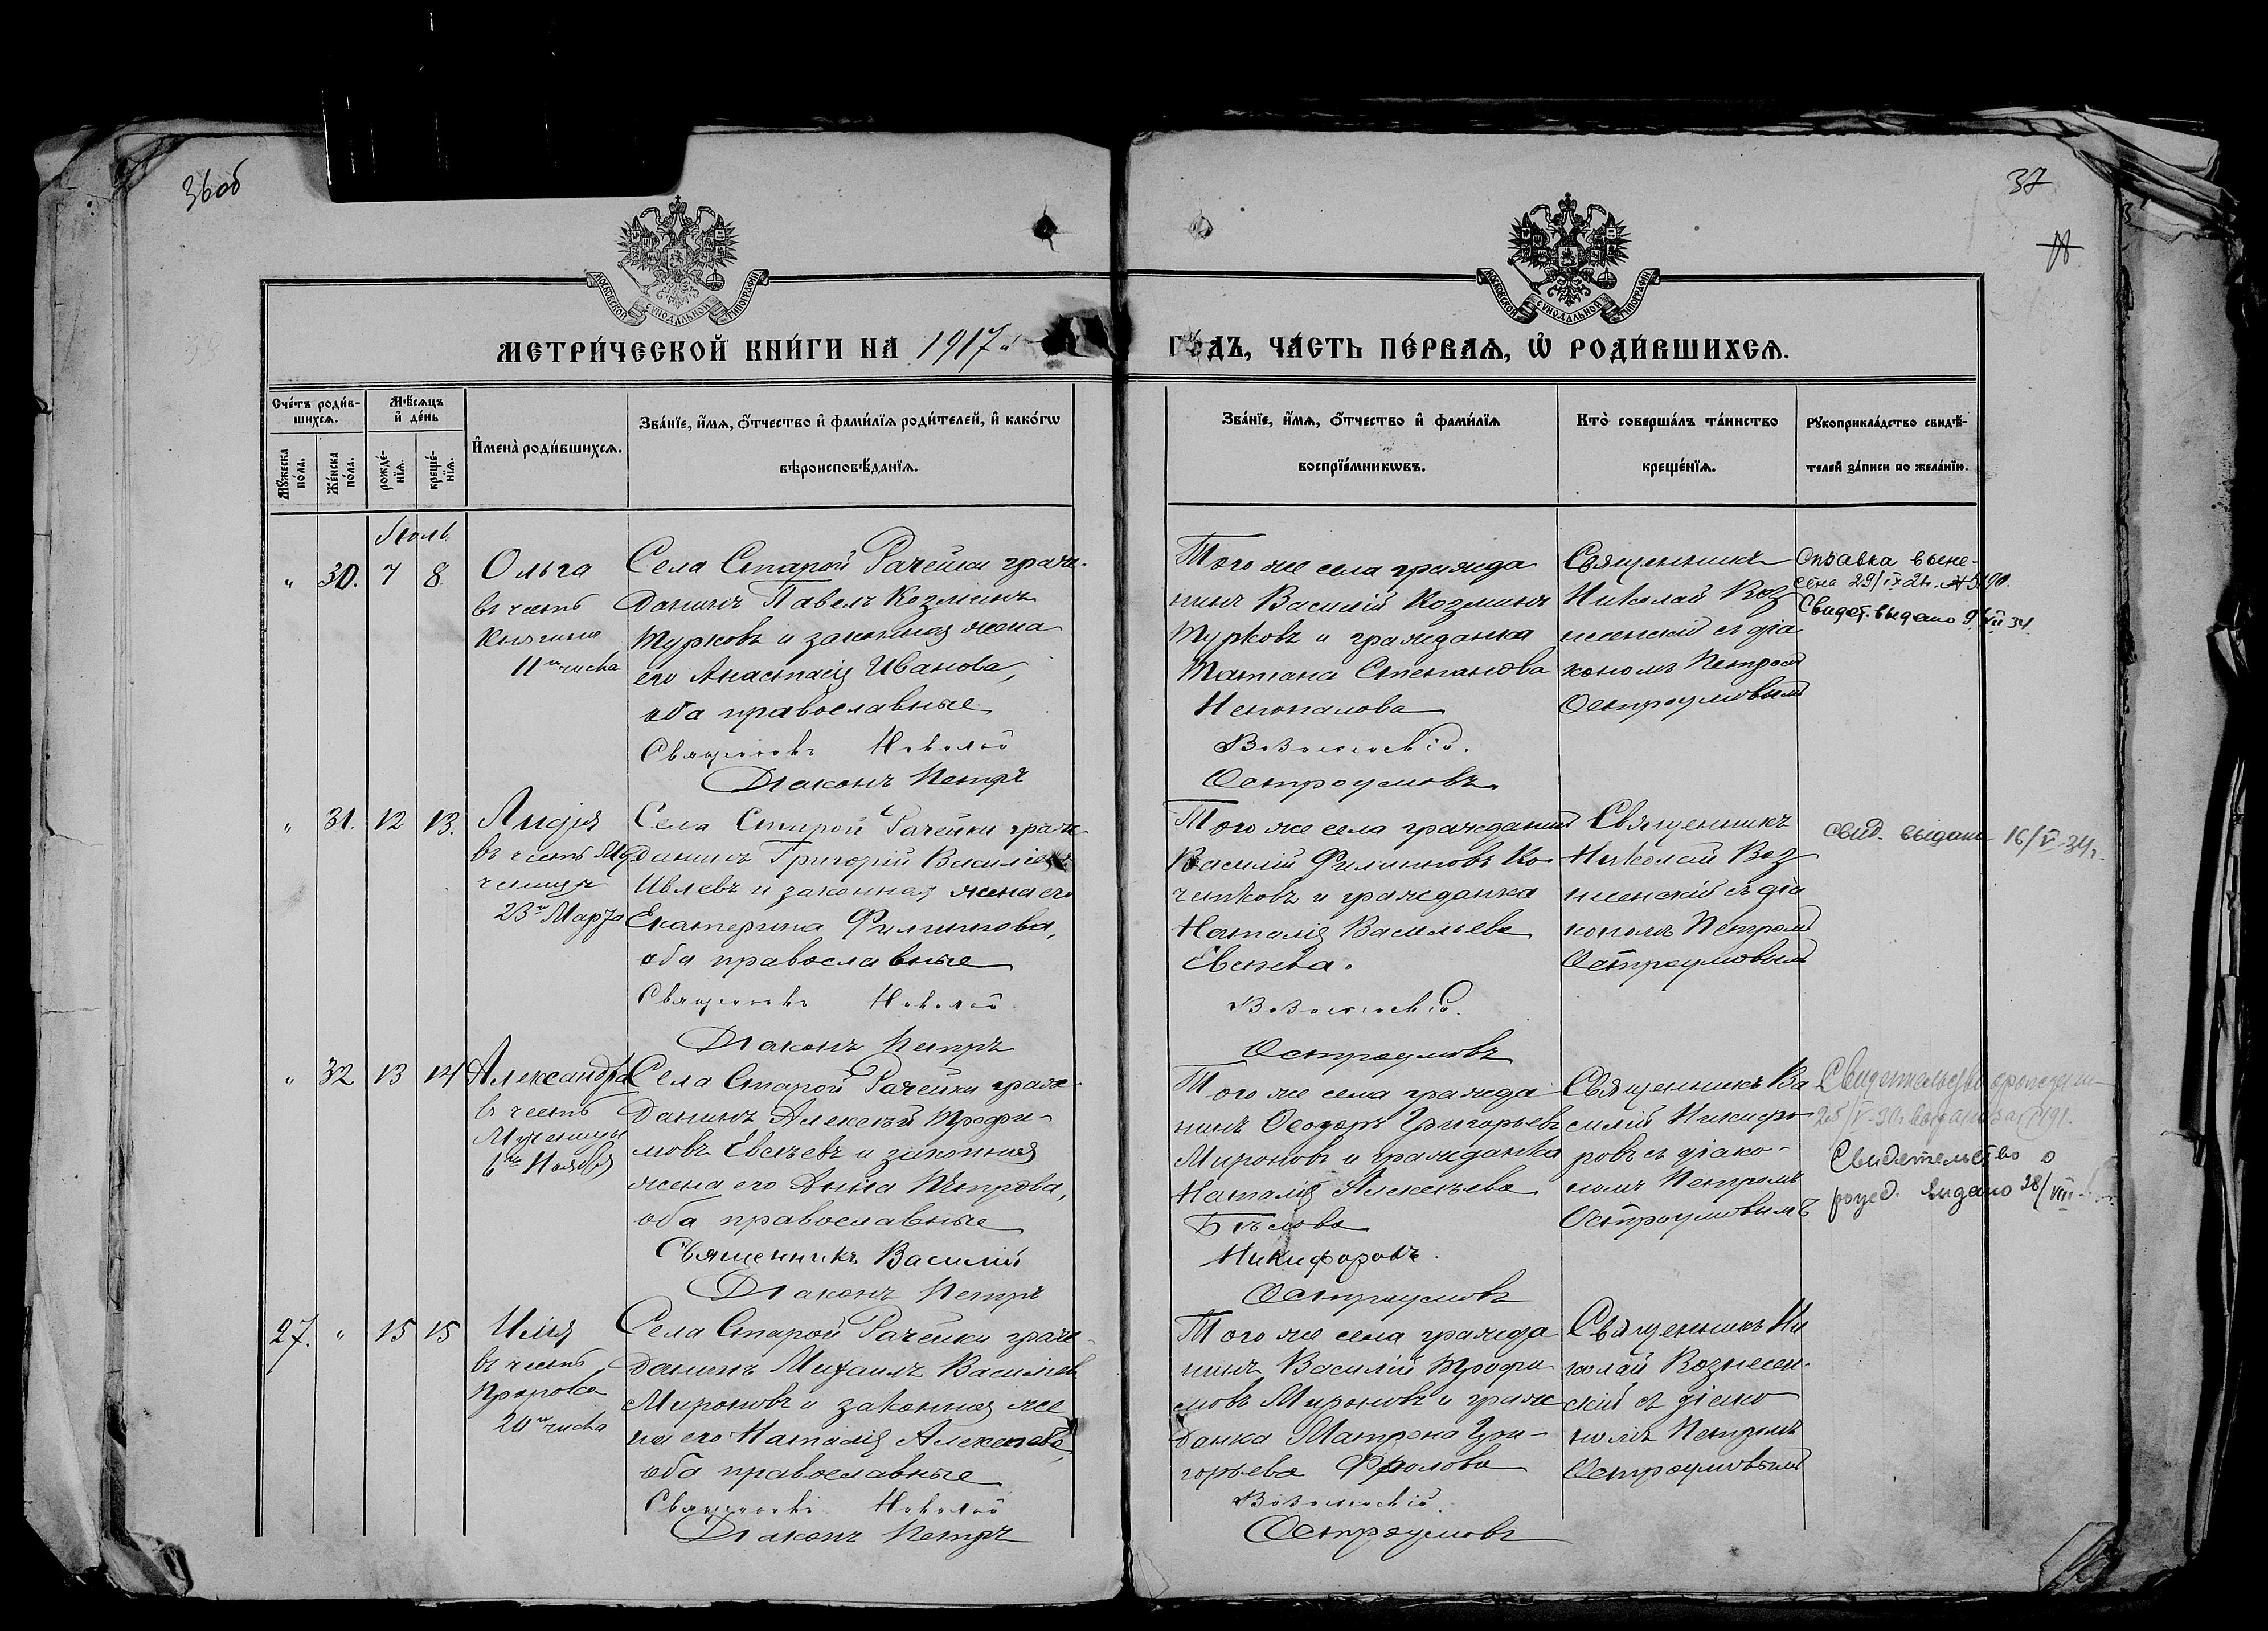 36 об
37
МОСКОВСКОЙ СѴНОДАЛЬНОЙ ТИПОГРАФІИ
МОСКОВСКОЙ СѴНОДАЛЬНОЙ ТИПОГРАФІИ
МЕТРИ́ЧЕСКОЙ КНИ́ГИ НА 1917 й ГО́ДЪ, ЧА́СТЬ ПЕ́РВАѦ, Ѡ҆ РОДИ́ВШИХСѦ.
Сче́тъ роди́в-
шихсѧ.
Мѣ́сѧцъ
и҆ де́нь
Мꙋ́жеска
по́ла.
Же́нска
по́ла.
рожде́-
нїѧ.
креще́-
нїѧ.
И҆мена̀ роди́вшихсѧ.
Зва́нїе, и҆́мѧ, ѻ҆́тчество и҆ фами́лїѧ роди́телей, и҆ како́гѡ
вѣроисповѣ́данїѧ.
Зва́нїе, и҆́мѧ, ѻ҆́тчество и҆ фами́лїѧ
воспрїе́мникѡвъ.
Кто̀ соверша́лъ та́инство
креще́нїѧ.
Рꙋкоприкла́дство свидѣ́-
телей за́писи по жела́нїю.
Іюль
" 30. 7 8
Ольга
въ честь
Княгини
11го числа
Села Старой Рачейки граж-
данинъ Павелъ Козминъ
Турковъ и законная жена
его Анастасія Иванова,
оба православные
Священникъ Николай
Діаконъ Петръ
Того же села гражда
нинъ Василій Козминъ
Турковъ и гражданка
Татіана Степанова
Непопалова
Вознесенскій.
Остроумовъ
Священникъ
Николай Воз
несенскій съ діа
кономъ Петромъ
Остроумовымъ
Справка выне-
сена 29/IX
Свидет. выдано 9/VII 34.
" 31. 12 13.
Лидія
въ честь Му
ченицы
23го Марта
Села Старой Рачейки граж-
данинъ Григорій Василіевъ
Ивлевъ и законная жена его
Екатерина Филиппова,
оба православные
Священникъ Николай
Діаконъ Петръ
Того же села гражданинъ
Василій Филипповъ Ко-
четковъ и гражданка
Наталія Васильева
Вознесенскій.
Остроумовъ
Священникъ
Николай Воз
несенскій съ діа
кономъ Петромъ
Остроумовымъ
свид. выдано 16/V-34г.
" 32 13 14
Александра
въ честь
Мученицы
6го Ноября
Села Старой Рачейки граж-
данинъ Алексѣй Трофи-
мовъ Евсѣевъ и законная
жена его Анна Петрова,
оба православные
Священникъ Василій
Діаконъ Петръ
Того же села гражда
нинъ Ѳеодоръ Григорьевъ
Мироновъ и гражданка
Наталія Алексѣева
Бѣлова
Никифоровъ.
Остроумовъ
Священникъ Ва
силій Никифо-
ровъ съ діако-
номъ Петромъ
Остроумовымъ
Свидетельство о
рожд. выдано 28/VIII
27. " 15 15
Илія
въ честь
Пророка
20го числа
Села Старой Рачейки граж-
данинъ Михаилъ Василіевъ
Мироновъ и законная же
на его Наталія Алексѣева,
оба православные
Священникъ Николай
Діаконъ Петръ
Того же села гражда
нинъ Василій Трофи
мовъ Мироновъ и граж
данка Матрона Гри-
горьева Фролова
Вознесенскій.
Остроумовъ
Священникъ Ни
колай Вознесен-
скій съ діако
номъ Петромъ
Остроумовымъ